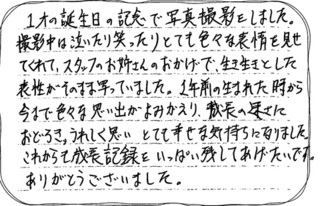 1才の誕生日の記念で写真撮影をしました。
撮影中は泣いたり笑ったりとても色々な表情を見せ
てくれて、スタッフのお姉さんのおかげで、生き生きとした
表情がそのまま写っていました。1年前の生まれた時から
今まで色々な思い出がよみがえり、成長の早さに
おどろき、うれしく思い とても幸せな気持ちになりました。
これからも成長記録をいっぱい残してあげたいです。
ありがとうございました。